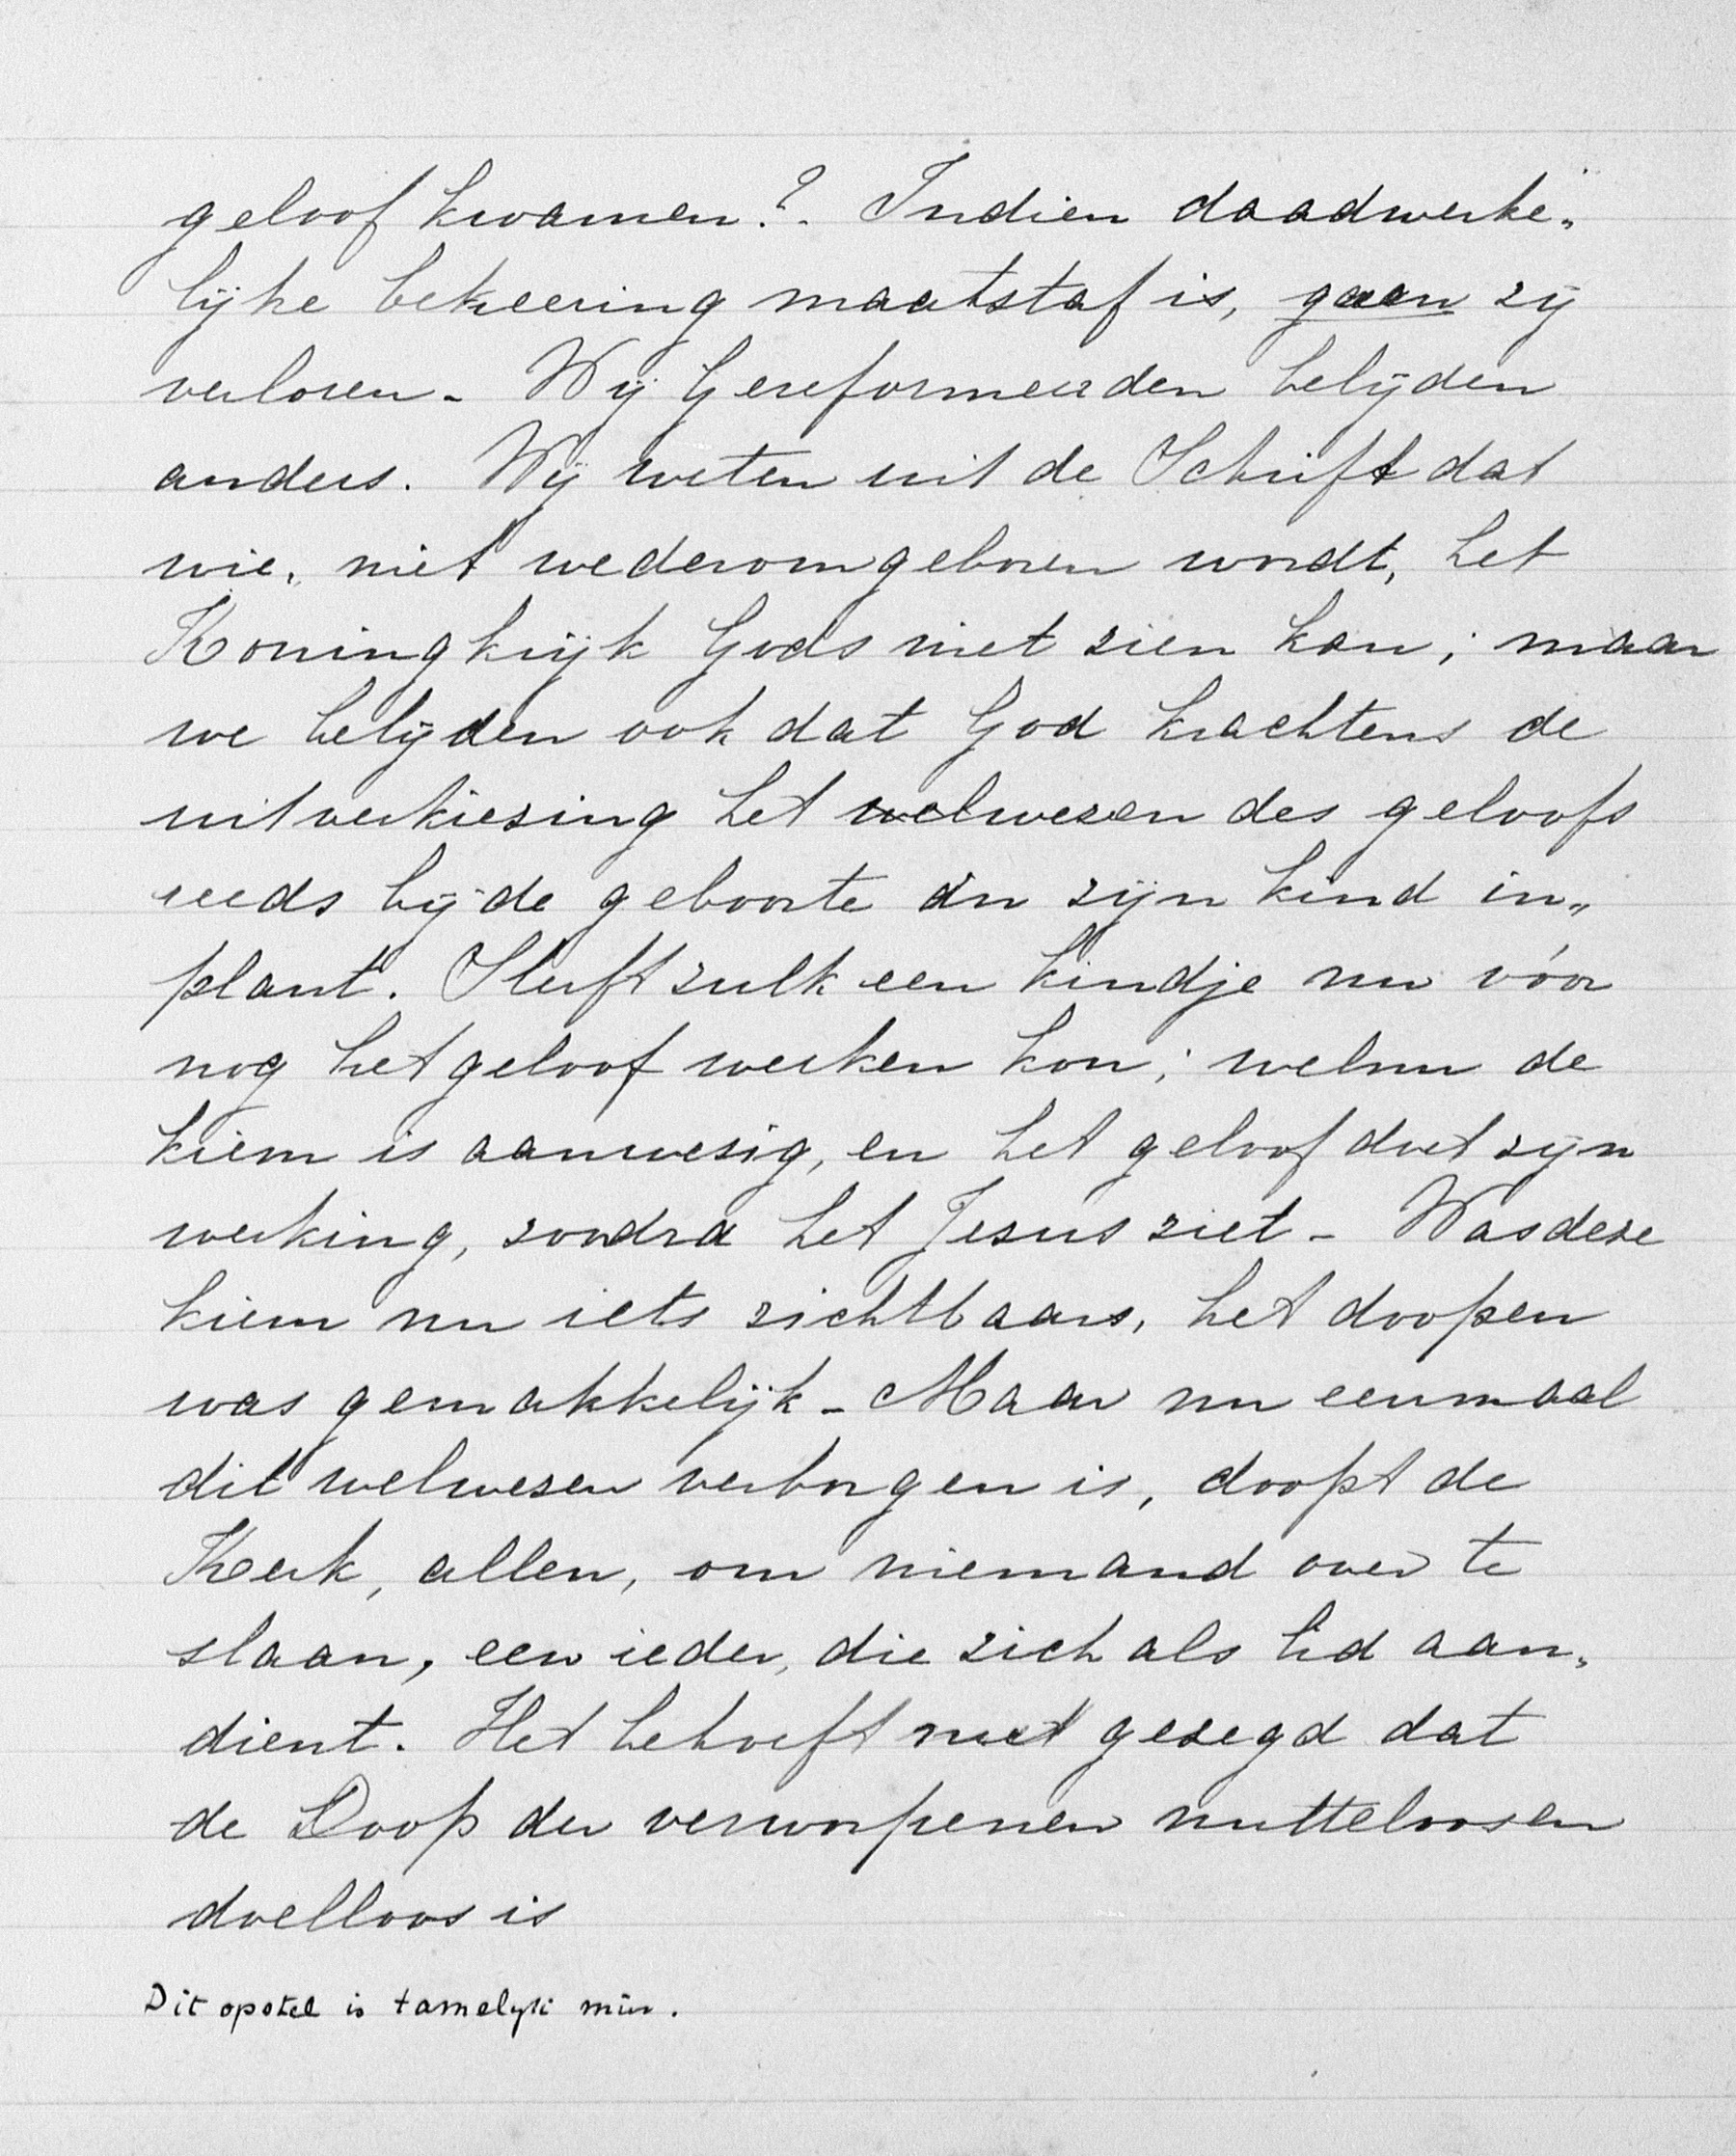 geloof kwamen?. Indien daadwerke„
lijke bekeering maatstaf is, gaan zij
verloren - Wij Gereformeerden belijden
anders. Wij weten uit de Schrift dat
wie, niet wederomgeboren wordt, het
Koningkrijk Gods niet zien kan; maar
we belijden ook dat God krachtens de
uitverkiezing het welwezen des geloofs
reeds bij de geboorte in zijn kind in„
plant. Sterft zulk een kindje nu vóór
nog het geloof werken kon; welnu de
kiem is aanwezig, en het geloof doet zijn
werking, zoodra het Jezus ziet - Was deze
kiem nu iets zichtbaars, het doopen
was gemakkelijk - Maar nu eenmaal
dit welwezen verborgen is, doopt de
Kerk, allen, om niemand over te
slaan, een ieder, die zich als lid aan„
dient. Het behoeft niet gezegd dat
de Doop der verworpenen nutteloos en
doelloos is
Dit opstel is tamelijk min.